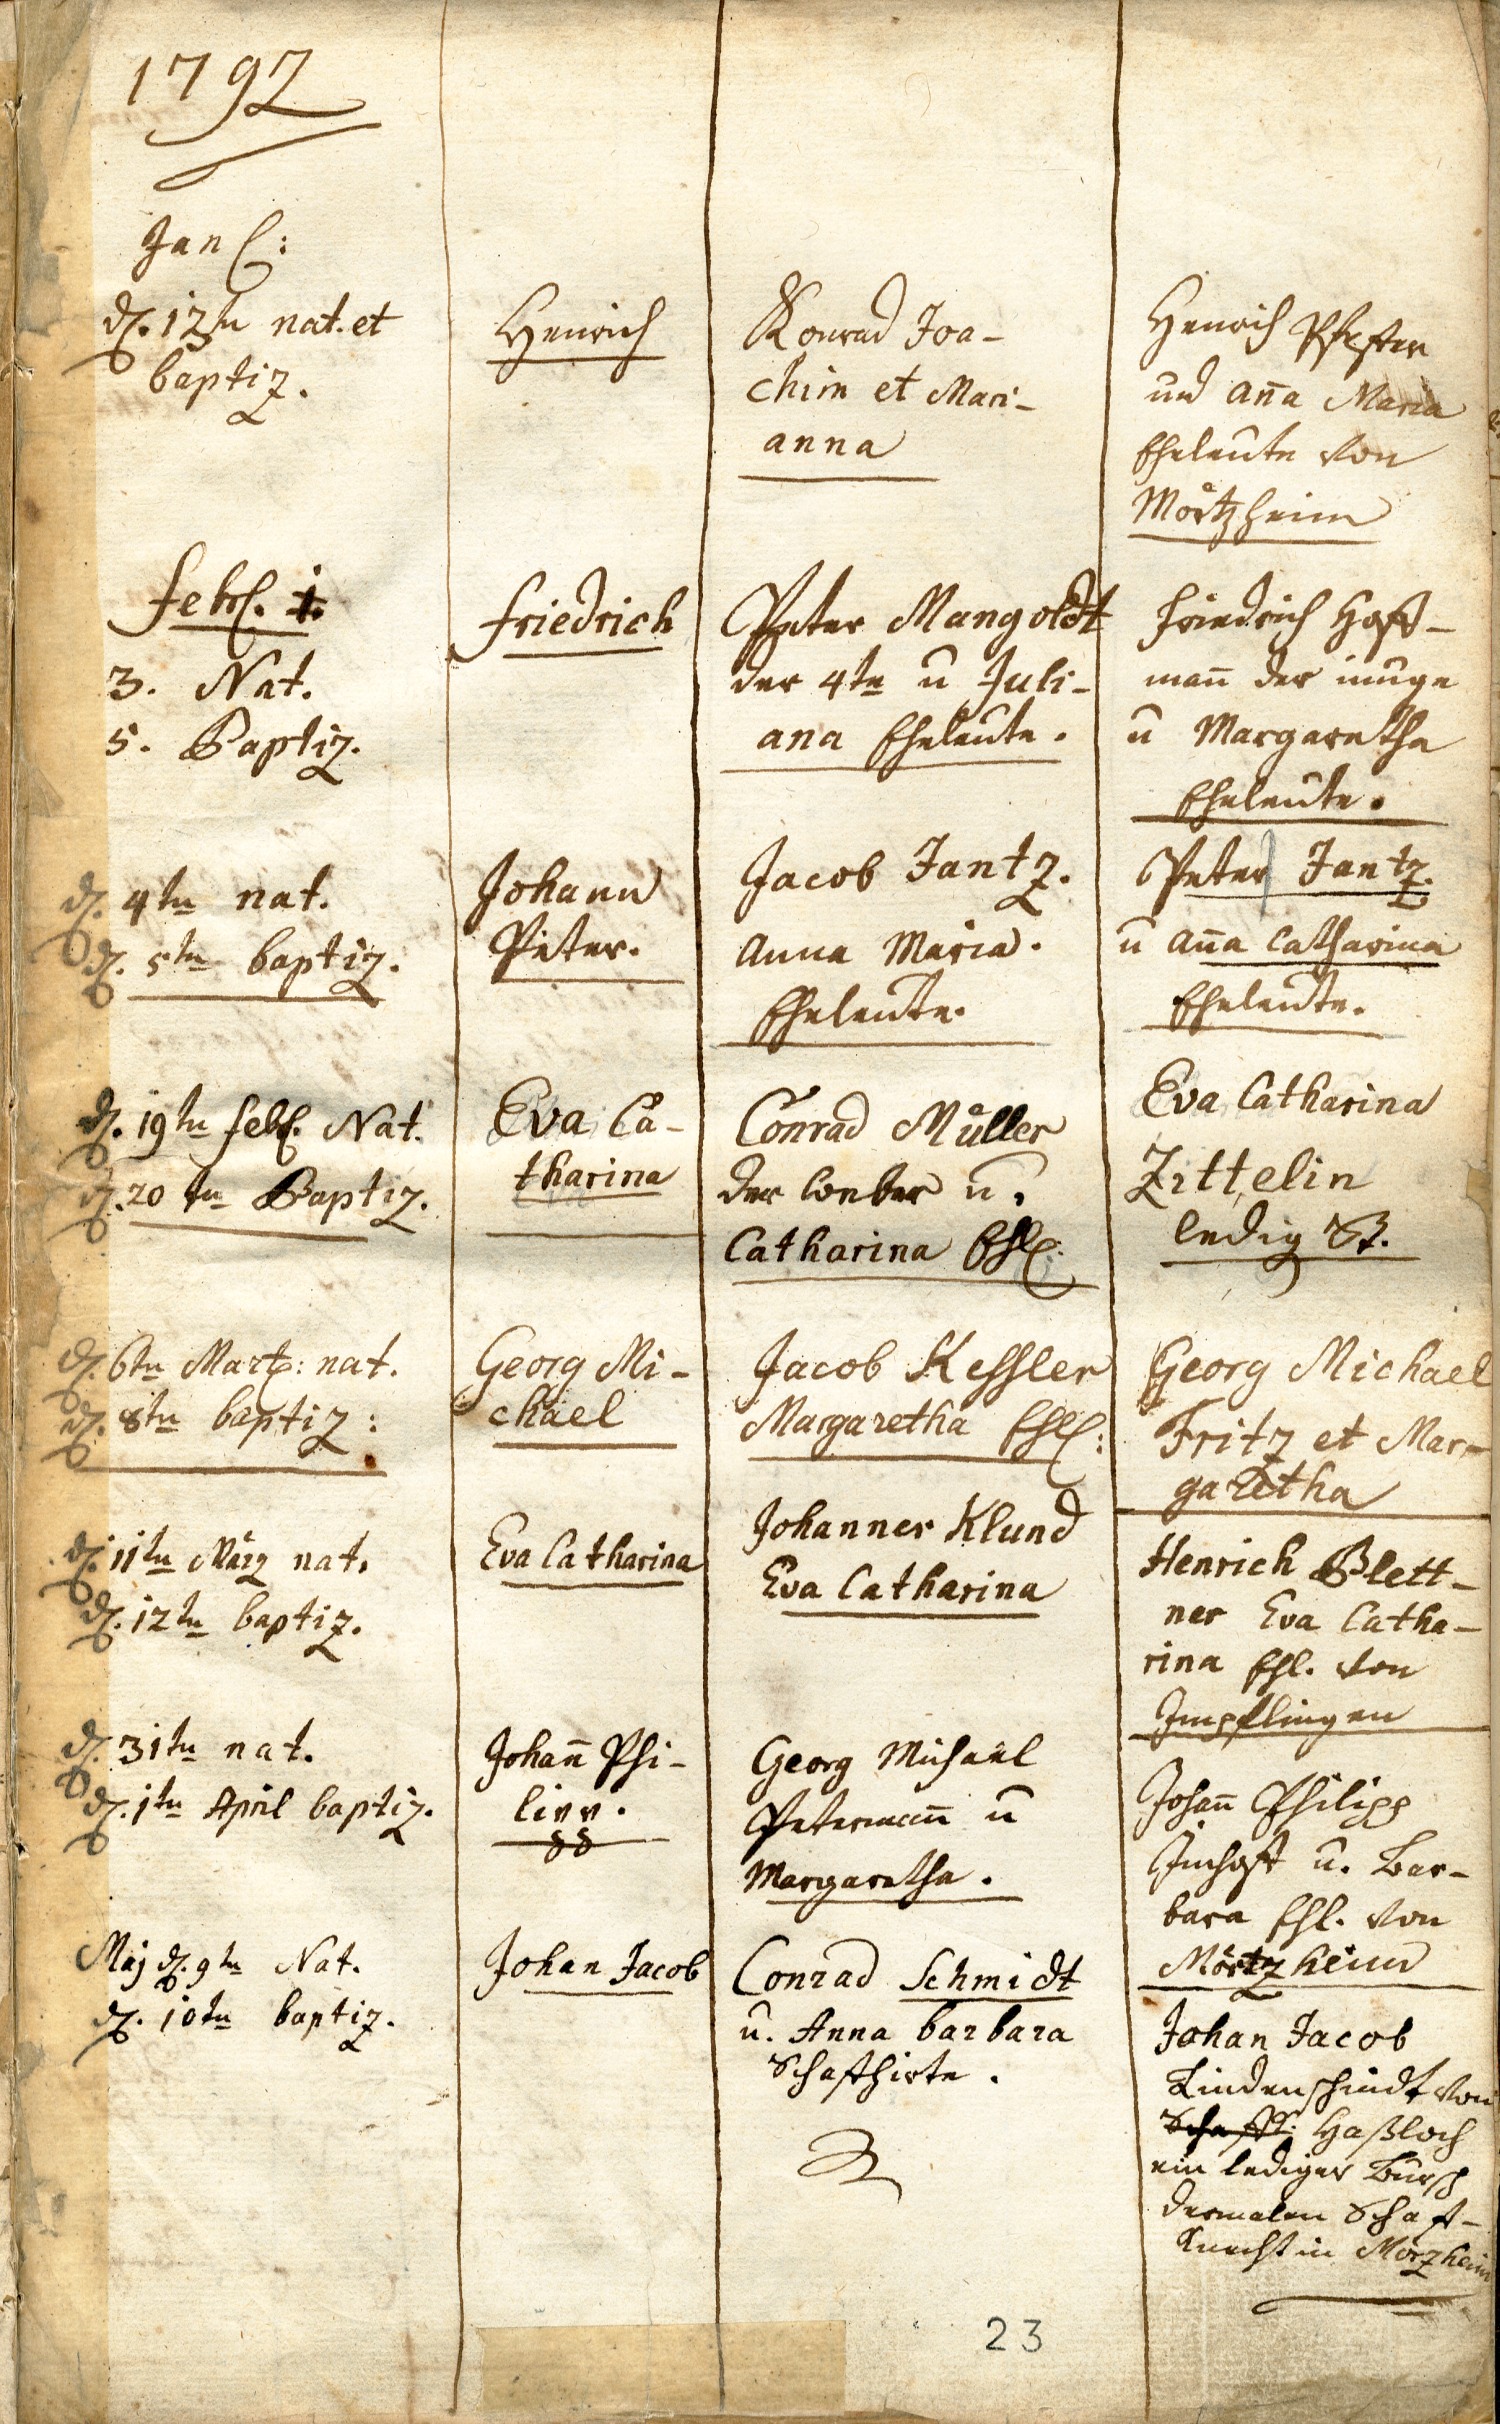 1792
Jan:
d. 12tn nat. et
baptiz.
Henrich
Konrad Joa-
chim et Mari-
anna
Henrich
und Anna Maria
Eheleute von
Mörtzheim
Febr. 1.
3. Nat.
5. Baptiz.
Friedrich
Peter Mangoldt
der 4te u Juli-
ana Eheleute.
Friedrich Hoff-
mann der iunge
u Margaretha
Eheleute.
d. 4tn nat.
d. 5tn baptiz.
Johann
Peter.
Jacob Jantz.
Anna Maria.
Eheleute.
Peter Jantz.
u Anna Catharina
Eheleute.
d. 19tn Febr. Nat.
d. 20tn Baptiz.
Eva Ca-
tharina
Conrad Müller
der Weber u.
Catharina Ehl:
Eva Catharina
Zittelin
ledig St.
d. 6tn Mart: nat.
d. 8tn baptiz:
Georg Mi-
chael
Jacob Kessler
Margaretha Ehl:
Georg Michael
Fritz et Mar-
garetha
d. 11tn März nat.
d. 12tn baptiz.
Eva Catharina
Johannes Klund
Eva Catharina
Henrich Blett-
ner Eva Catha-
rina Ehl. von
Impflingen
d. 31tn nat.
d. 1tn April baptiz.
Johann Phi-
lipp.
Georg Michael
Petermann u
Margaretha.
Johann Philipp
Imhoff u. Bar-
bara Ehl. von
Mörtzheim
Maj d. 9tn Nat.
d. 10tn baptiz.
Johan Jacob
Conrad Schmidt
u. Anna barbara
Schafhirte.
Johan Jacob
Lindenschmidt von
Haßloch
ein lediger Bursch
dermalen Schaf-
Knecht in Mörzheim
23